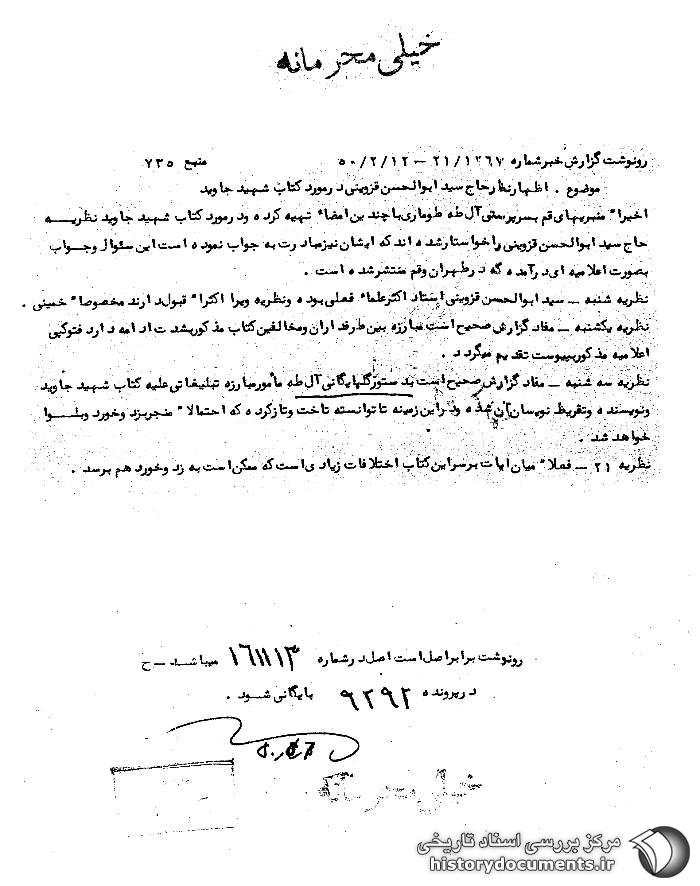 خیلی محرمانه
رونوشت گزارش خبر شماره ۲۱/۱۲۶۷ – ۵۰/۲/۱۲ منبع ۷۳۵
موضوع . اظهارنظر حاج سید ابوالحسن قزوینی در مورد کتاب شهید جاوید
اخیرا" منبریهای قم بسرپرستی آل طه طوماری با چندین امضاء تهیه کرده و در مورد کتاب شهید جاوید نظریه
حاج سید ابوالحسن قزوینی را خواستار شده اند که ایشان نیز مبادرت به جواب نموده است این سئوال و جواب
بصورت اعلامیه ای در آمده که در طهران و قم منتشر شده است .
نظریه شنبه – سید ابوالحسن قزوینی استاد اکثر علماء فعلی بوده و نظریه ویرا اکثرا" قبول دارند مخصوصا" خمینی .
نظریه یکشنبه – مفاد گزارش صحیح است مبارزه بین طرفداران و مخالفین کتاب مذکور بشدت ادامه دارد فتوکپی
اعلامیه مذکور بپیوست تقدیم میگردد .
نظریه سه شنبه – مفاد گزارش صحیح است بدستور گلپایگانی آل طه مأمور مبارزه تبلیغاتی علیه کتاب شهید جاوید
و نویسنده و تقریظ نویسان آن شده و در این زمینه تا توانسته تاخت و تاز کرده که احتمالا" منجر بزد و خورد و بلوا
خواهد شد .
نظریه ۲۱ – فعلا" میان ایات بر سر این کتاب اختلافات زیادی است که ممکن است به زد و خورد هم برسد .
رونوشت برابر اصل است اصل در شماره ۱۶۱۱۱۳ میباشد – ح
در پرونده ۹۲۹۲ بایگانی شود .
خیلی محرمانه
مرکز بررسی اسناد تاریخی
historydocuments.ir